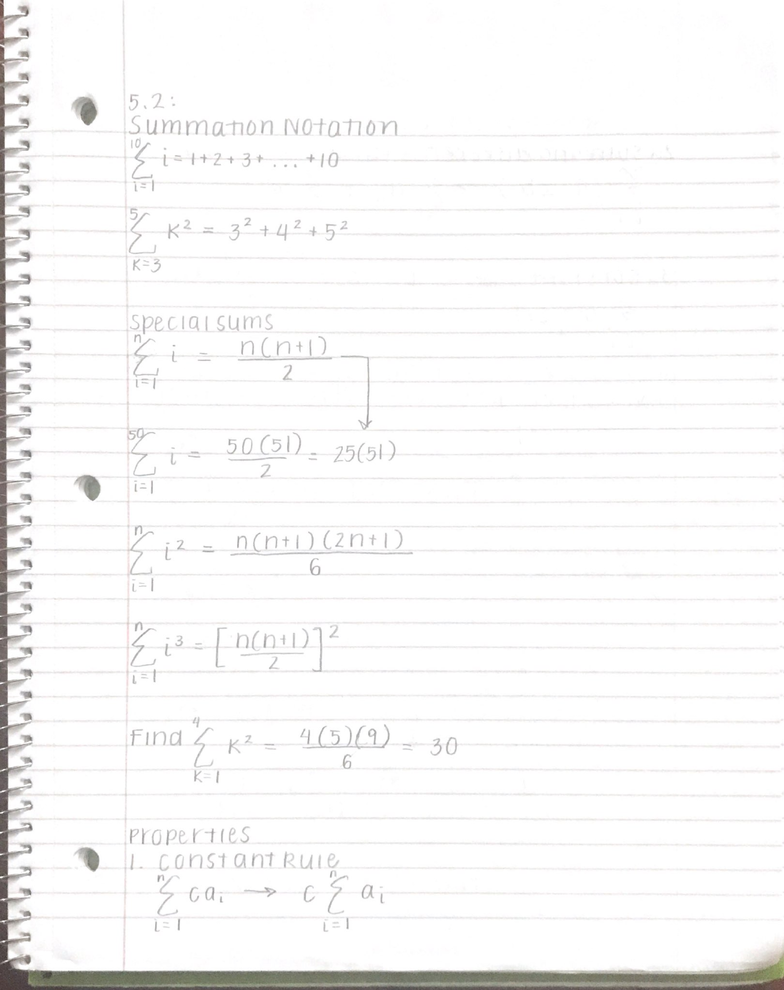 5.2:
Summation Notation
10
∑ i = 1+2+3+...+10
i=1
5
∑ K² = 3² + 4² + 5²
K=3
Special sums
n
∑ i = n(n+1)/2
i=1
50
∑ i = 50(51)/2 = 25(51)
i=1
n
∑ i² = n(n+1)(2n+1)/6
i=1
n
∑ i³ = [n(n+1)/2]²
i=1
4
Find ∑ K² = 4(5)(9)/6 = 30
K=1
Properties
1. Constant Rule
n n
∑ caᵢ → c ∑ aᵢ
i=1 i=1